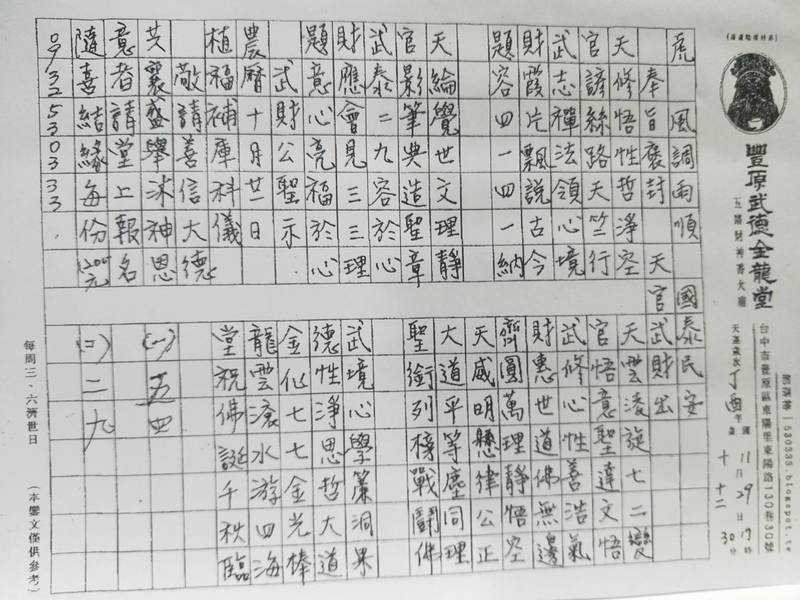 豐原武德金龍堂
五路財神香火廟
部落格 | 530333.blogspot.tw
台中市豐原區東陽里東陽路130巷30號
天運歲次丁酉年
國11月29日17時30分
農十 十二
虎 風調雨順 國泰民安
奉旨褒封 天官武財出
天修悟性哲淨空
官諺絲路天竺行
武志禪法領心境
財霞片飄說古今
題容四一四一納
天綸覺世文理靜
官影筆典造聖章
武泰二九容於心
財應會見三三理
題意心亮福於心
武財公聖示
農曆十月廿一日
植福補庫科儀
敬請善信大德
共襄盛舉沐神恩
意者請堂上報名
隨喜結緣每份1200元
0932530333.
天雲凌旋七二變
官悟意聖達文悟
武修心性善浩氣
財惠世道佛無邊
齊圓萬理靜悟空
天威明懸律公正
大道平等塵同理
聖銜列榜戰鬪佛
武境心學簾洞果
德性淨思哲大道
金仙七七金光棒
龍雲滾水游四海
堂祝佛誕千秩臨
(一) 五四
(二) 二九
每周三、六濟世日 (本鸞文僅供參考)